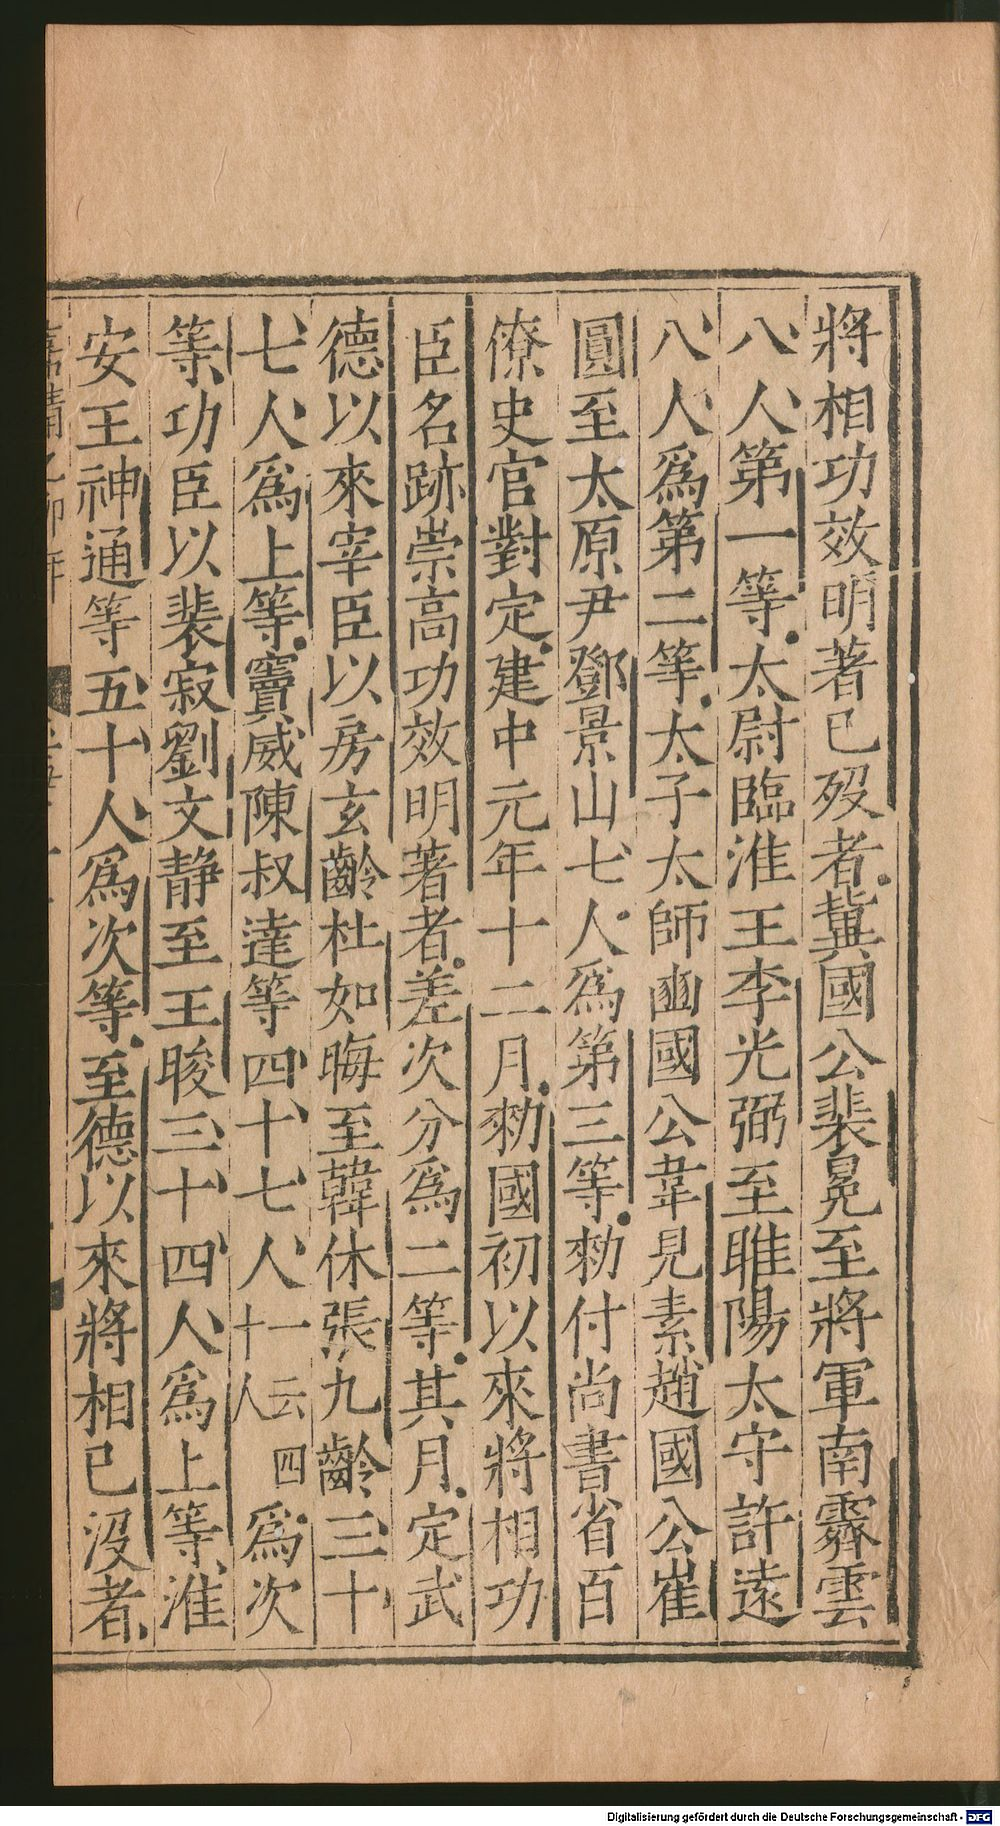 將相功效明著已歿者冀國公裴冕至將軍南霽雲
八人第一等太尉臨淮王李光弼至睢陽太守許遠
八人爲第二等太子太師豳國公韋見素趙國公崔
圓至太原尹鄧景山七人爲第三等勑付尚書省百
僚史官對定建中元年十二月勑國初以來將相功
臣名跡崇高功效明著者差次分爲二等其月定武
德以來宰臣以房玄齡杜如晦至韓休張九齡三十
七人爲上等竇威陳叔達等四十七人一云四十人爲次
等功臣以裴寂劉文静至王晙三十四人爲上等淮
安王神通等五十人爲次等至德以來將相已沒者
Digitalisierung gefördert durch die Deutsche Forschungsgemeinschaft - DFG